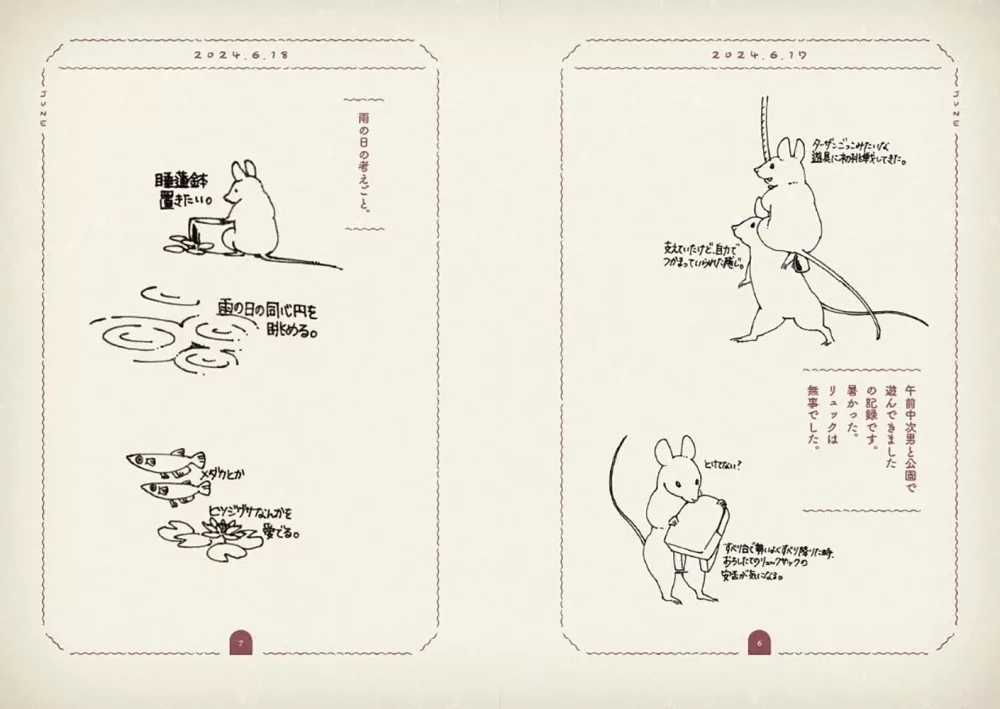 2024.6.17
JUNE
ターザンごっこみたいな
遊具に初挑戦してきた。
支えていたけど、自力で
つかまっていられた感じ。
午前中次男と公園で
遊んできました
の記録です。
暑かった。
リュックは
無事でした。
とけてない？
すべり台で勢いよくすべり降りた時、
おろしたてのリュックサックの
安否が気になる。
6
2024.6.18
JUNE
雨の日の考えごと。
睡蓮鉢
置きたい。
雨の日の同心円を
眺める。
メダカとか
ヒツジグサなんかを
愛でる。
7